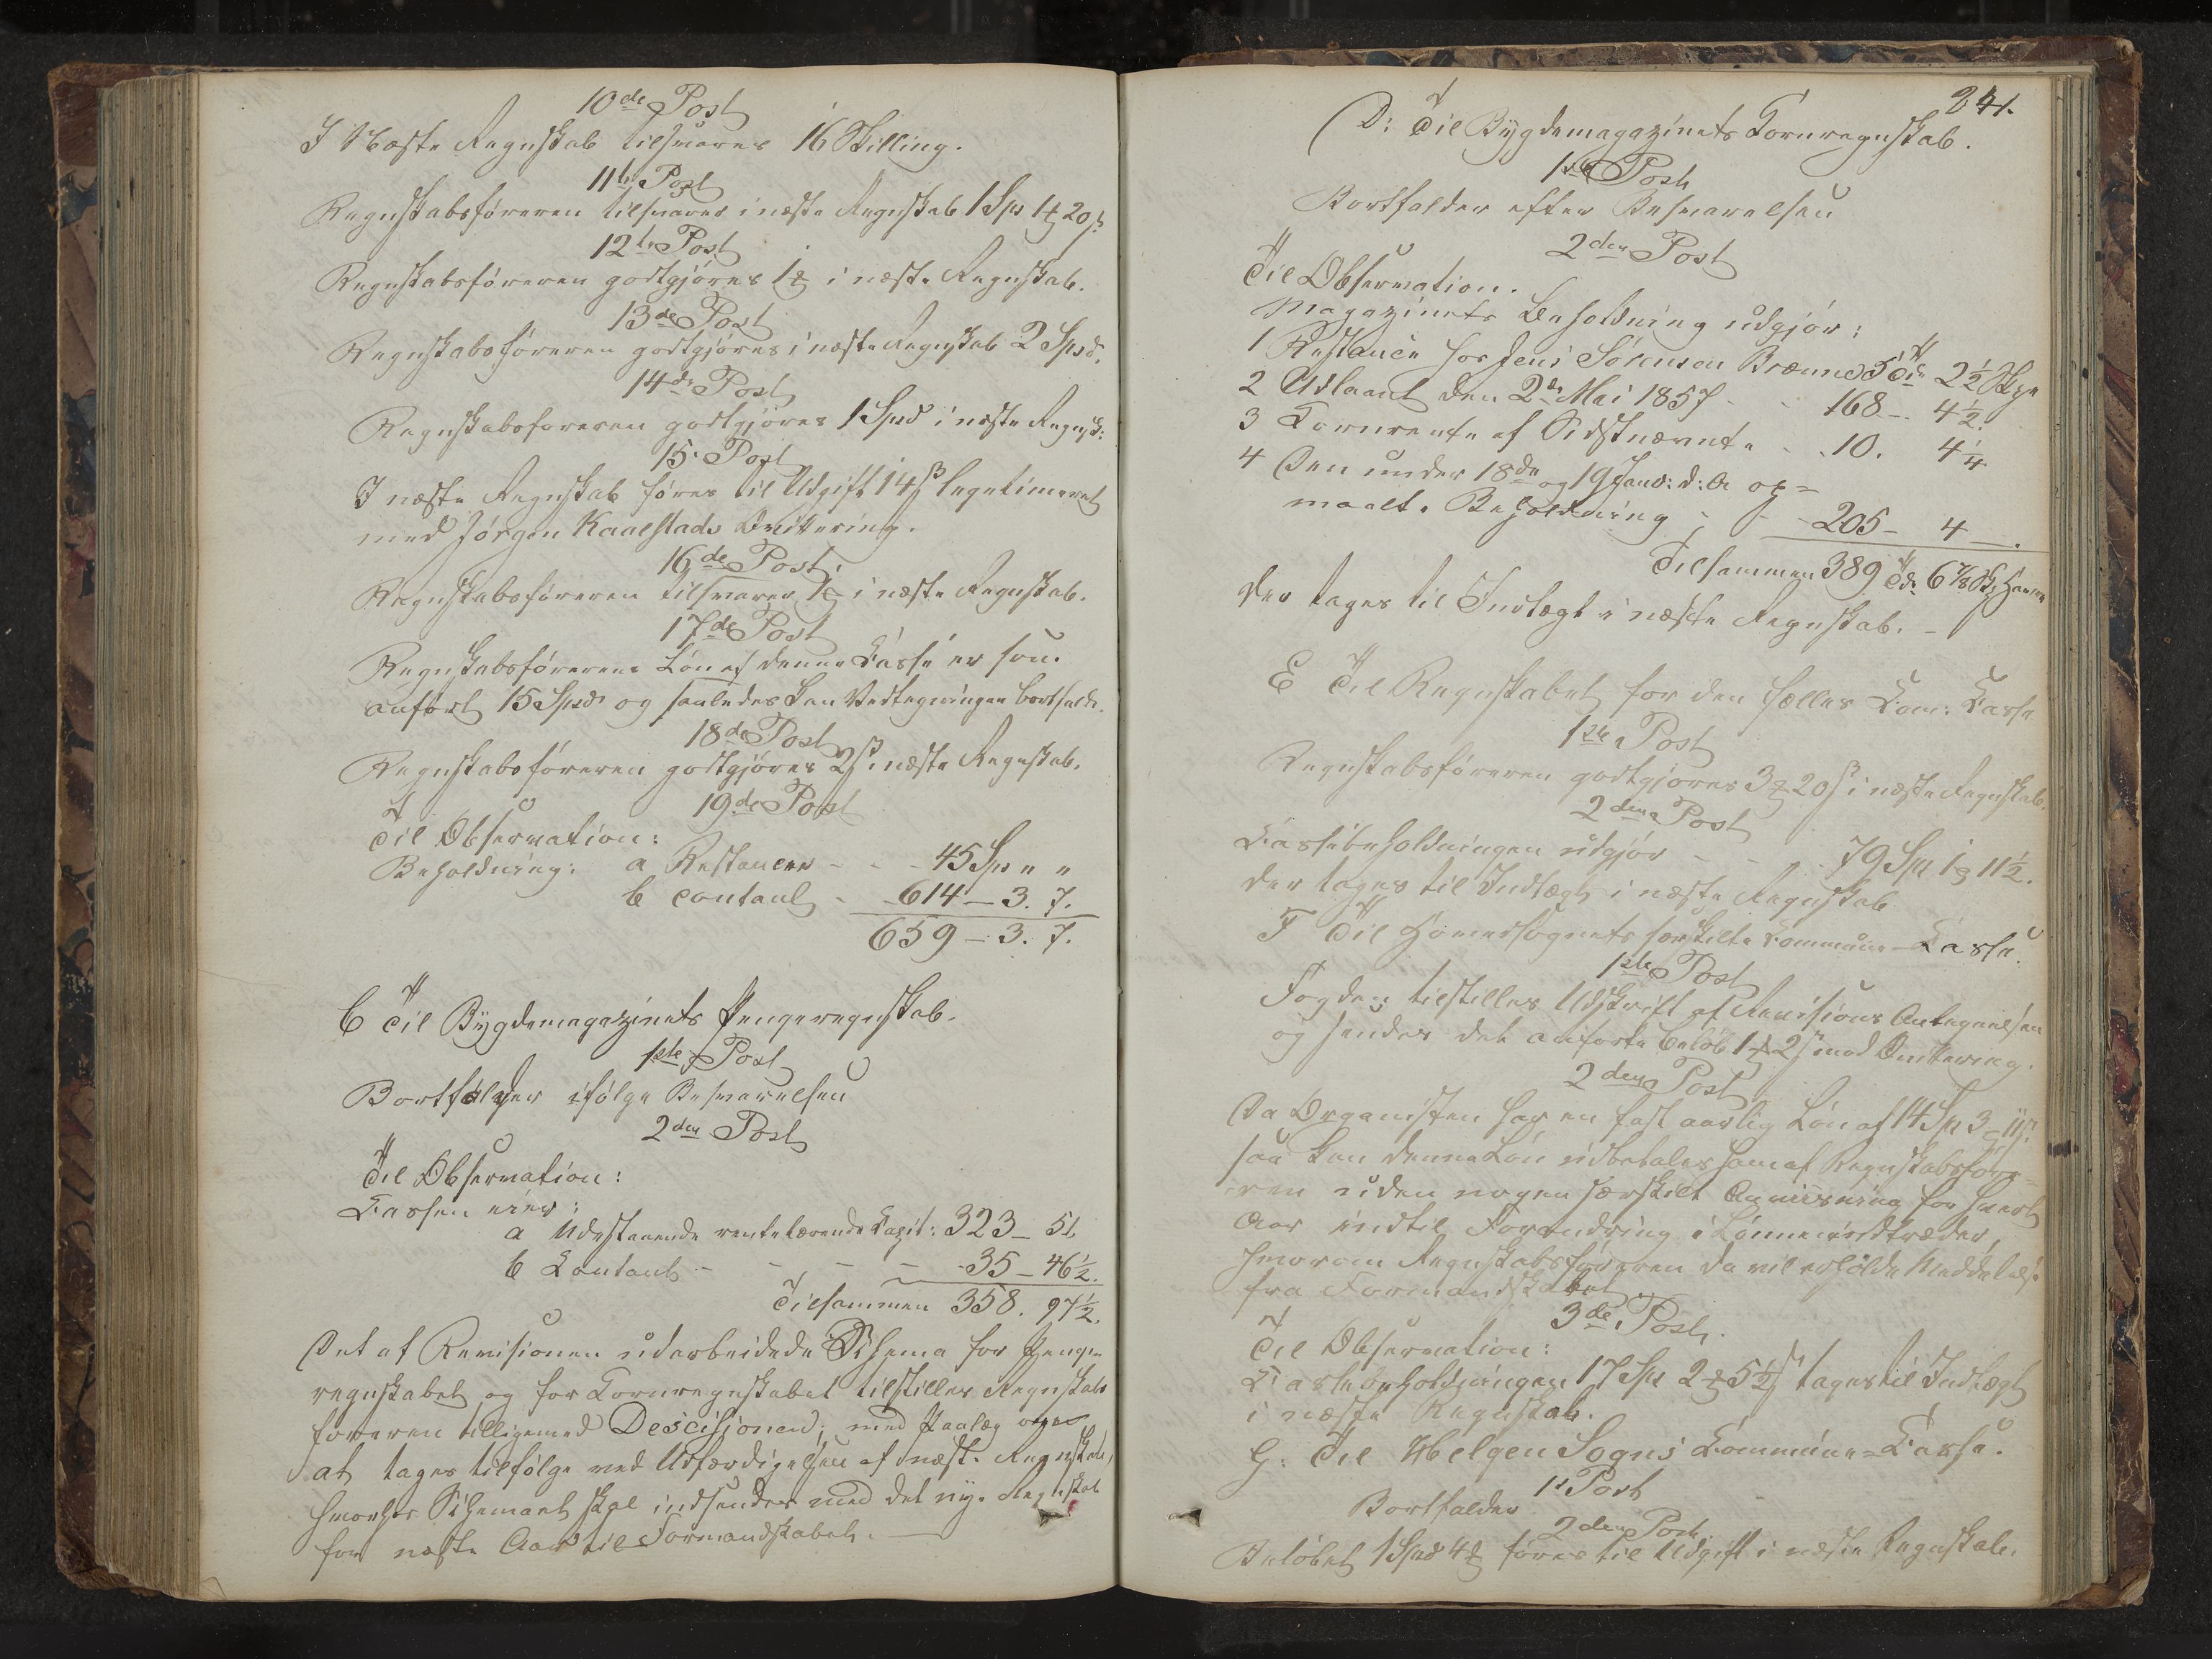 10de Post
I Næste Regnskab tilsvares 16 Skilling.
11te Post
Regnskabsføreren tilsvares i næste Regnskab 1 Spd 1 ꝥ 20 β
12te Post
Regnskabsføreren godtgjøres 1 ꝥ i næste Regnskab.
13de Post
Regnskabsføreren godtgjøres i næste Regnskab 2 Spd.
14de Post
Regnskabsføreren godtgjøres 1 Spd i næste Regnsk:
15. Post
I næste Regnskab føres til Udgift 14 β legetimeret
med Jørgen Kaaelstads Qvittering.
16de Post
Regnskabsføreren tilsvarer 1 ꝥ i næste Regnskab.
17de Post
Regnskabsførerens Løn af denne Casse er
anført 15 Spd og saaledes kan Vedtegningen bortfalde.
18de Post
Regnskabsføreren godtgjøres 2 β i næste Regnskab.
19de Post
Til Observation:
Beholdning: a Restancer - - 45 Spd " "
b contant - 614 - 3. 7.
659 - 3. 7.
C Til Bygdemagazinets Pengeregnskab.
1ste Post
Bortfalder ifølge Besvarelsen
2den Post
Til Observation:
Cassen eier:
a Udestaaende rentebærende Capit: 323 - 51.
b Contant - - - - 35 - 46½.
Tilsammen 358. 97½.
Det af Revisionen udarbeidede Schema for Penge-
regnskabet og for Cornregnskabet tilstilles Regnskabs
føreren tilligemed Descisionen; med Paalæg
at tages tilfølge ved Udfærdigelsen af næste Regnskab,
hvorhos Schemaet skal indsendes med det nye Regnskab
for næste Aar til Formandskabet.
241.
D: Til Bygdemagazinets Cornregnskab.
1ste Post
Bortfalder efter Besvarelsen
2den Post
Til Observation.
Magazinets Beholdning udgjør:
1 Restance hos Jens Sørensen Brænne 5 Td. 2½ Skp
2 Udlaant den 2de Mai 1857 - - 168 - 4½.
3 Cornrente af Sidstnævnte - - 10. 4¼
4 Den under 18de og 19 Janv: d: A op=
maalte Beholdning - - 205 - 4 -.
Tilsammen 389 Td. 6⅞ Skp
der tages til Indtægt i næste Regnskab. -
E Til Regnskabet for den fælles Com: Casse
1ste Post
Regnskabsføreren godtgjøres 3 ꝥ 20 β i næste Regnskab.
2den Post
Cassebeholdningen udgjør - - 79 Spd 1 ꝥ 11½.
der tages til Indtægt i næste Regnskab
F Til Hovedsognets særskilte Commune-Casse.
1ste Post
Fogden tilstilles Udskrift af Revisions Antegnelsen
og sendes det anførte Beløb 1 ꝥ 2 β mod Qvittering.
2den Post
Da Organisten har en fast aarlig Løn af 14 Spd 3 ꝥ 11 β.
saa kan denne Løn udbetales ham af Regnskabsføre=
ren uden nogen særskilt Anviisning for hvert
Aar indtil Forandring i Lønnen indtræder,
hvorom Regnskabsføreren da vil erholde Meddelelse
fra Formandskabet
3de Post.
Til Observation:
Cassebeholdningen 17 Spd 2 ꝥ 5½ β tages til Indtægt
i næste Regnskab.
G. Til Helgen Sogns Commune=Casse.
1. Post
Bortfalder
2den Post
Beløbet 1 Spd 4 ꝥ føres til Udgift i næste Regnskab.